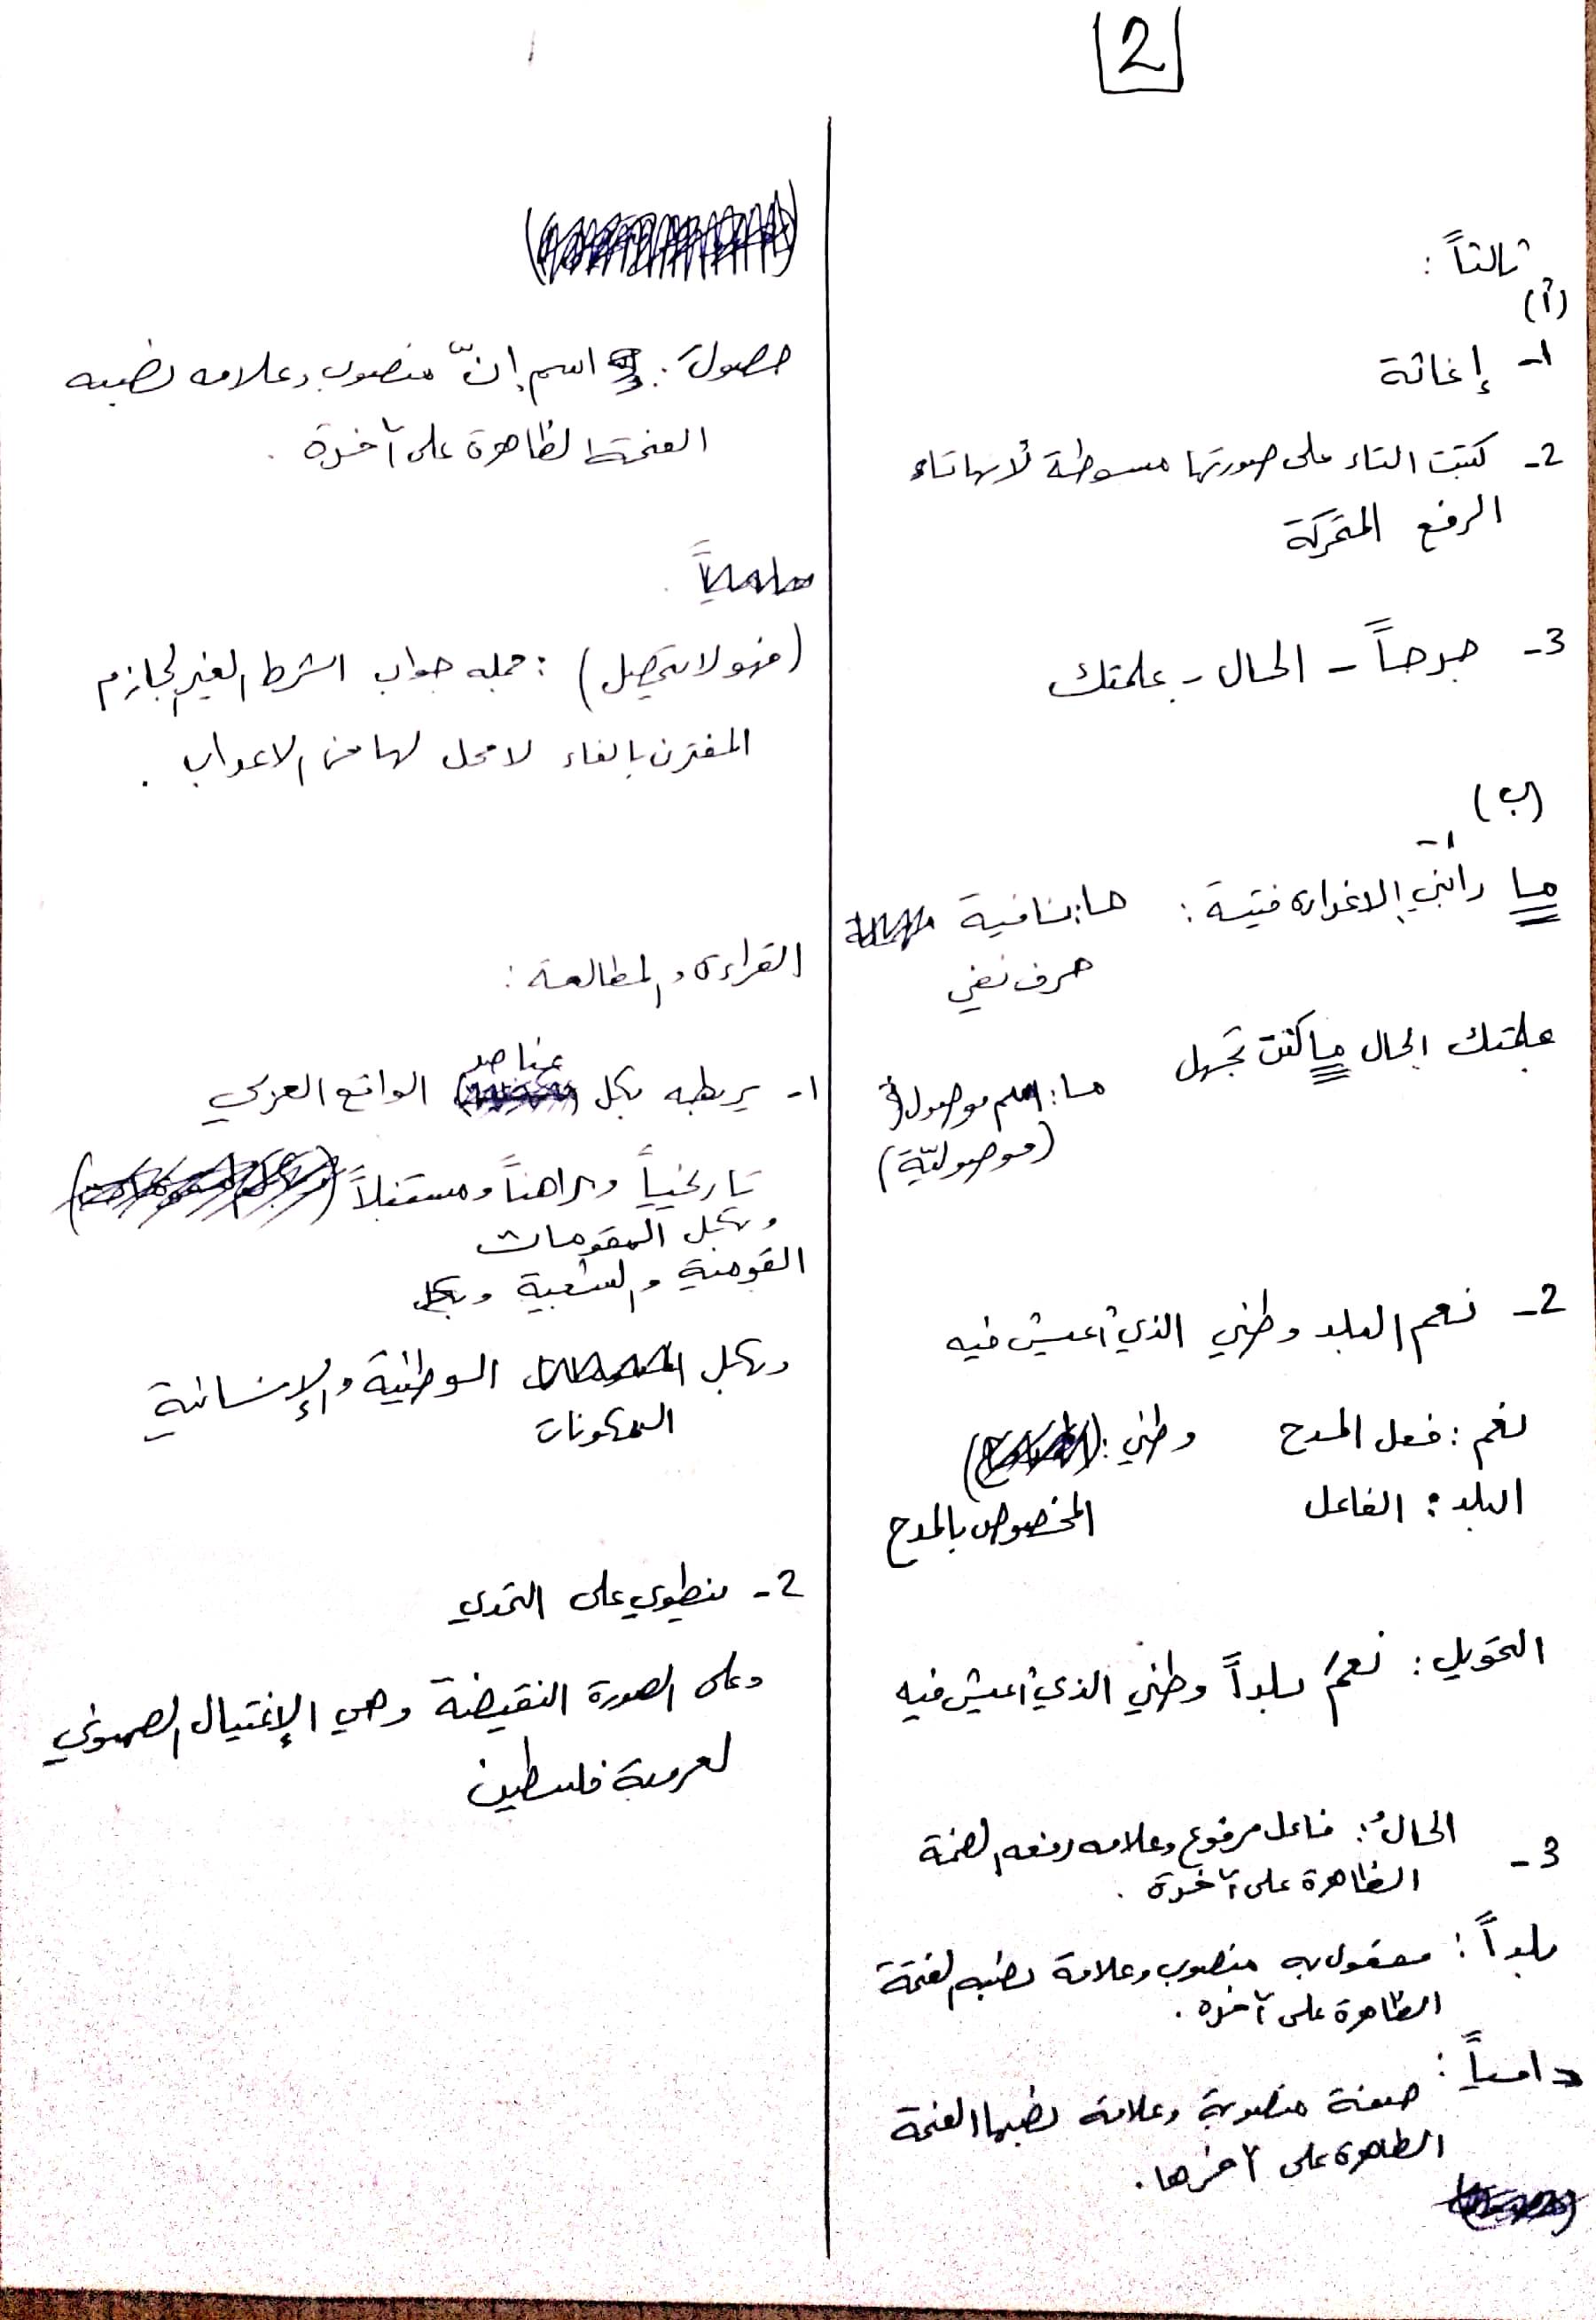 2
ثالثاً :
(أ)
1- إغاثة
2- كتبت التاء على صورتها مبسوطة لأنها تاء
الرفع المتحركة
3- جرحاً - الحال - علمتك
(ب)
1-
ما رابني إلا غرارة فتية : ما: نافية
حرف نفي
علمتك الحال ما كنت تجهل
ما: اسم موصول
(موصوليّة)
2- نعم البلد وطني الذي أعيش فيه
نعم : فعل المدح وطني :
البلد : الفاعل المخصوص بالمدح
التحويل : نعمَ بلداً وطني الذي أعيش فيه
3- الحالُ : فاعل مرفوع وعلامه رفعه الضمة
الظاهرة على آخرة .
بلداً : مفعول به منصوب وعلامة نصبه الفتحة
الظاهرة على آخره .
دامياً : صفة منصوبة وعلامة نصبها الفتحة
الظاهرة على آخرها .
حصولَ : اسم إنّ منصوب وعلامه نصبه
الفتحة الظاهرة على آخرة .
(فهو لا يستحيل) : جمله جواب الشرط الغير الجازم
المقترن بالفاء لا محل لها من الاعراب .
القراءة والمطالعة :
1- يربطه بكل عناصر الواقع العربي
تاريخياً وراهناً ومستقبلاً
وبكل المقومات
القومية والشعبية وبكل
وبكل الوطنية والإنسانية
المكونات
2- ينطوي على التحدي
وعلى الصورة النقيضة وهي الإغتيال الصهيوني
لعروبة فلسطين